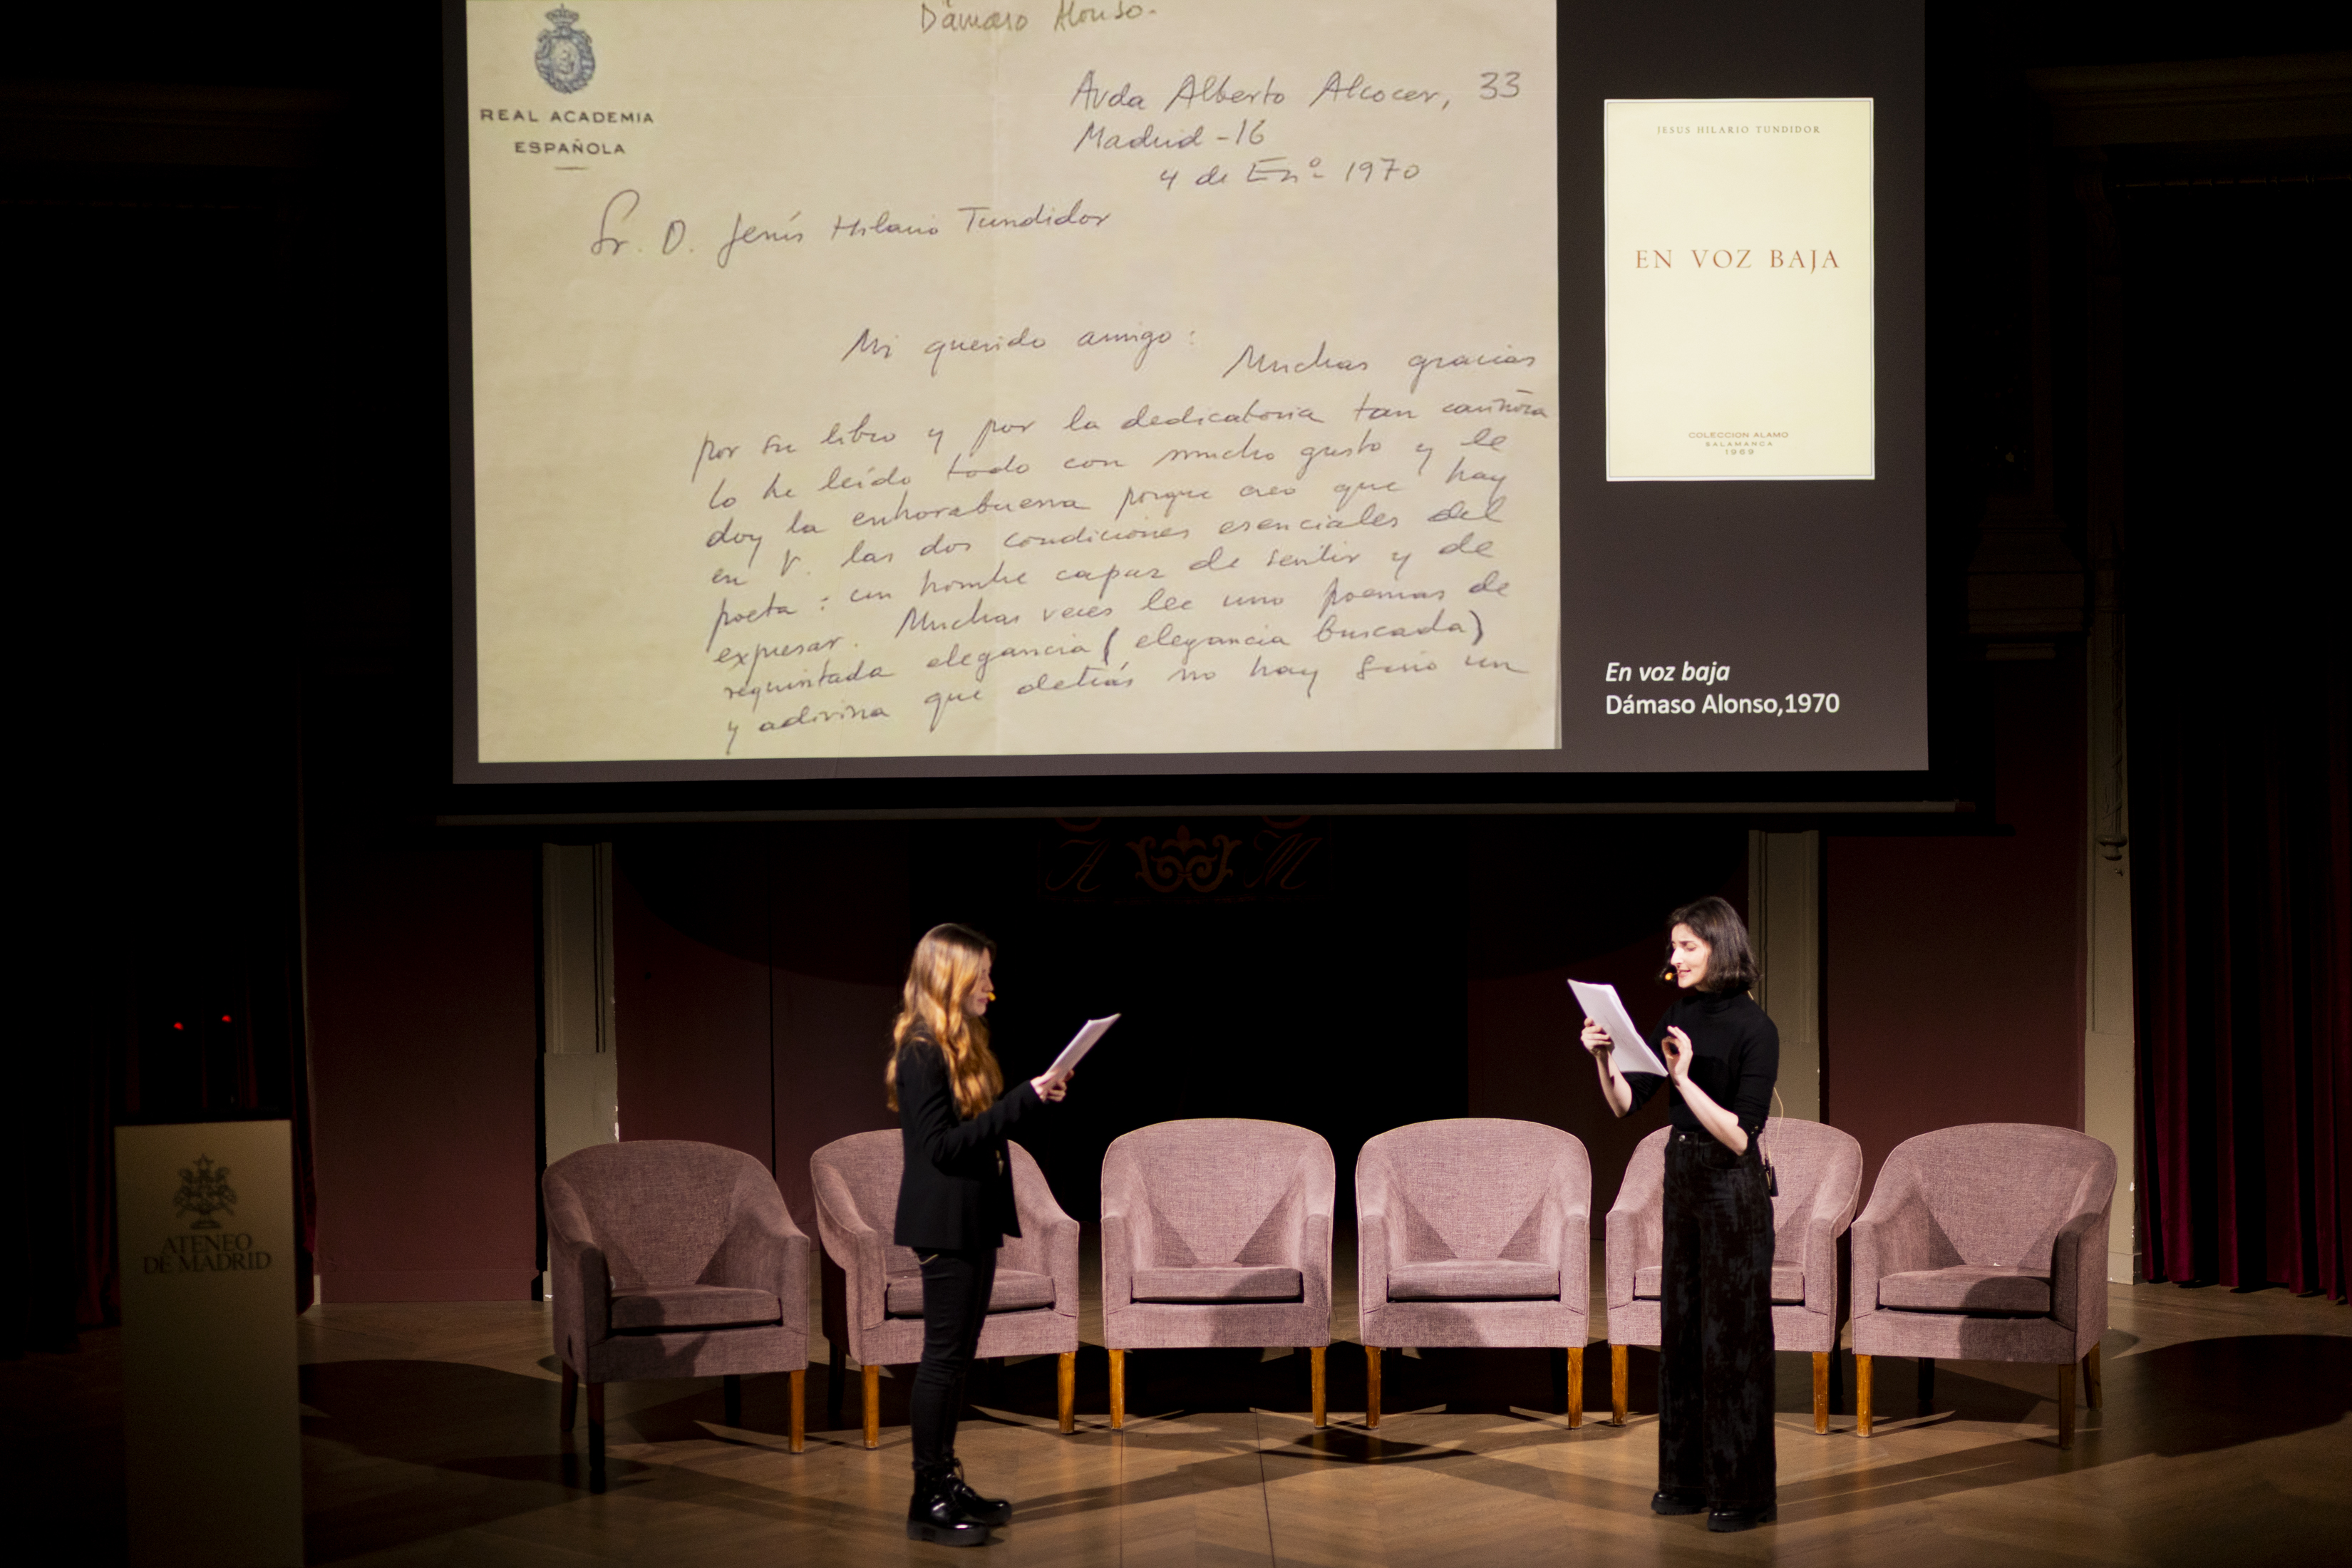 Dámaso Alonso.-
REAL ACADEMIA
ESPAÑOLA
Avda Alberto Alcocer, 33
Madrid-16
4 de Enº 1970
Sr. D. Jesús Hilario Tundidor
Mi querido amigo:
Muchas gracias
por su libro y por la dedicatoria tan cariñosa
lo he leído todo con mucho gusto y le
doy la enhorabuena porque creo que hay
en V. las dos condiciones esenciales del
poeta: un hombre capaz de sentir y de
expresar. Muchas veces lee uno poemas de
requintada elegancia (elegancia buscada)
y adivina que detrás no hay sino un
JESUS HILARIO TUNDIDOR
EN VOZ BAJA
COLECCION ALAMO
SALAMANCA
1969
En voz baja
Dámaso Alonso,1970
A M
ATENEO
DE MADRID